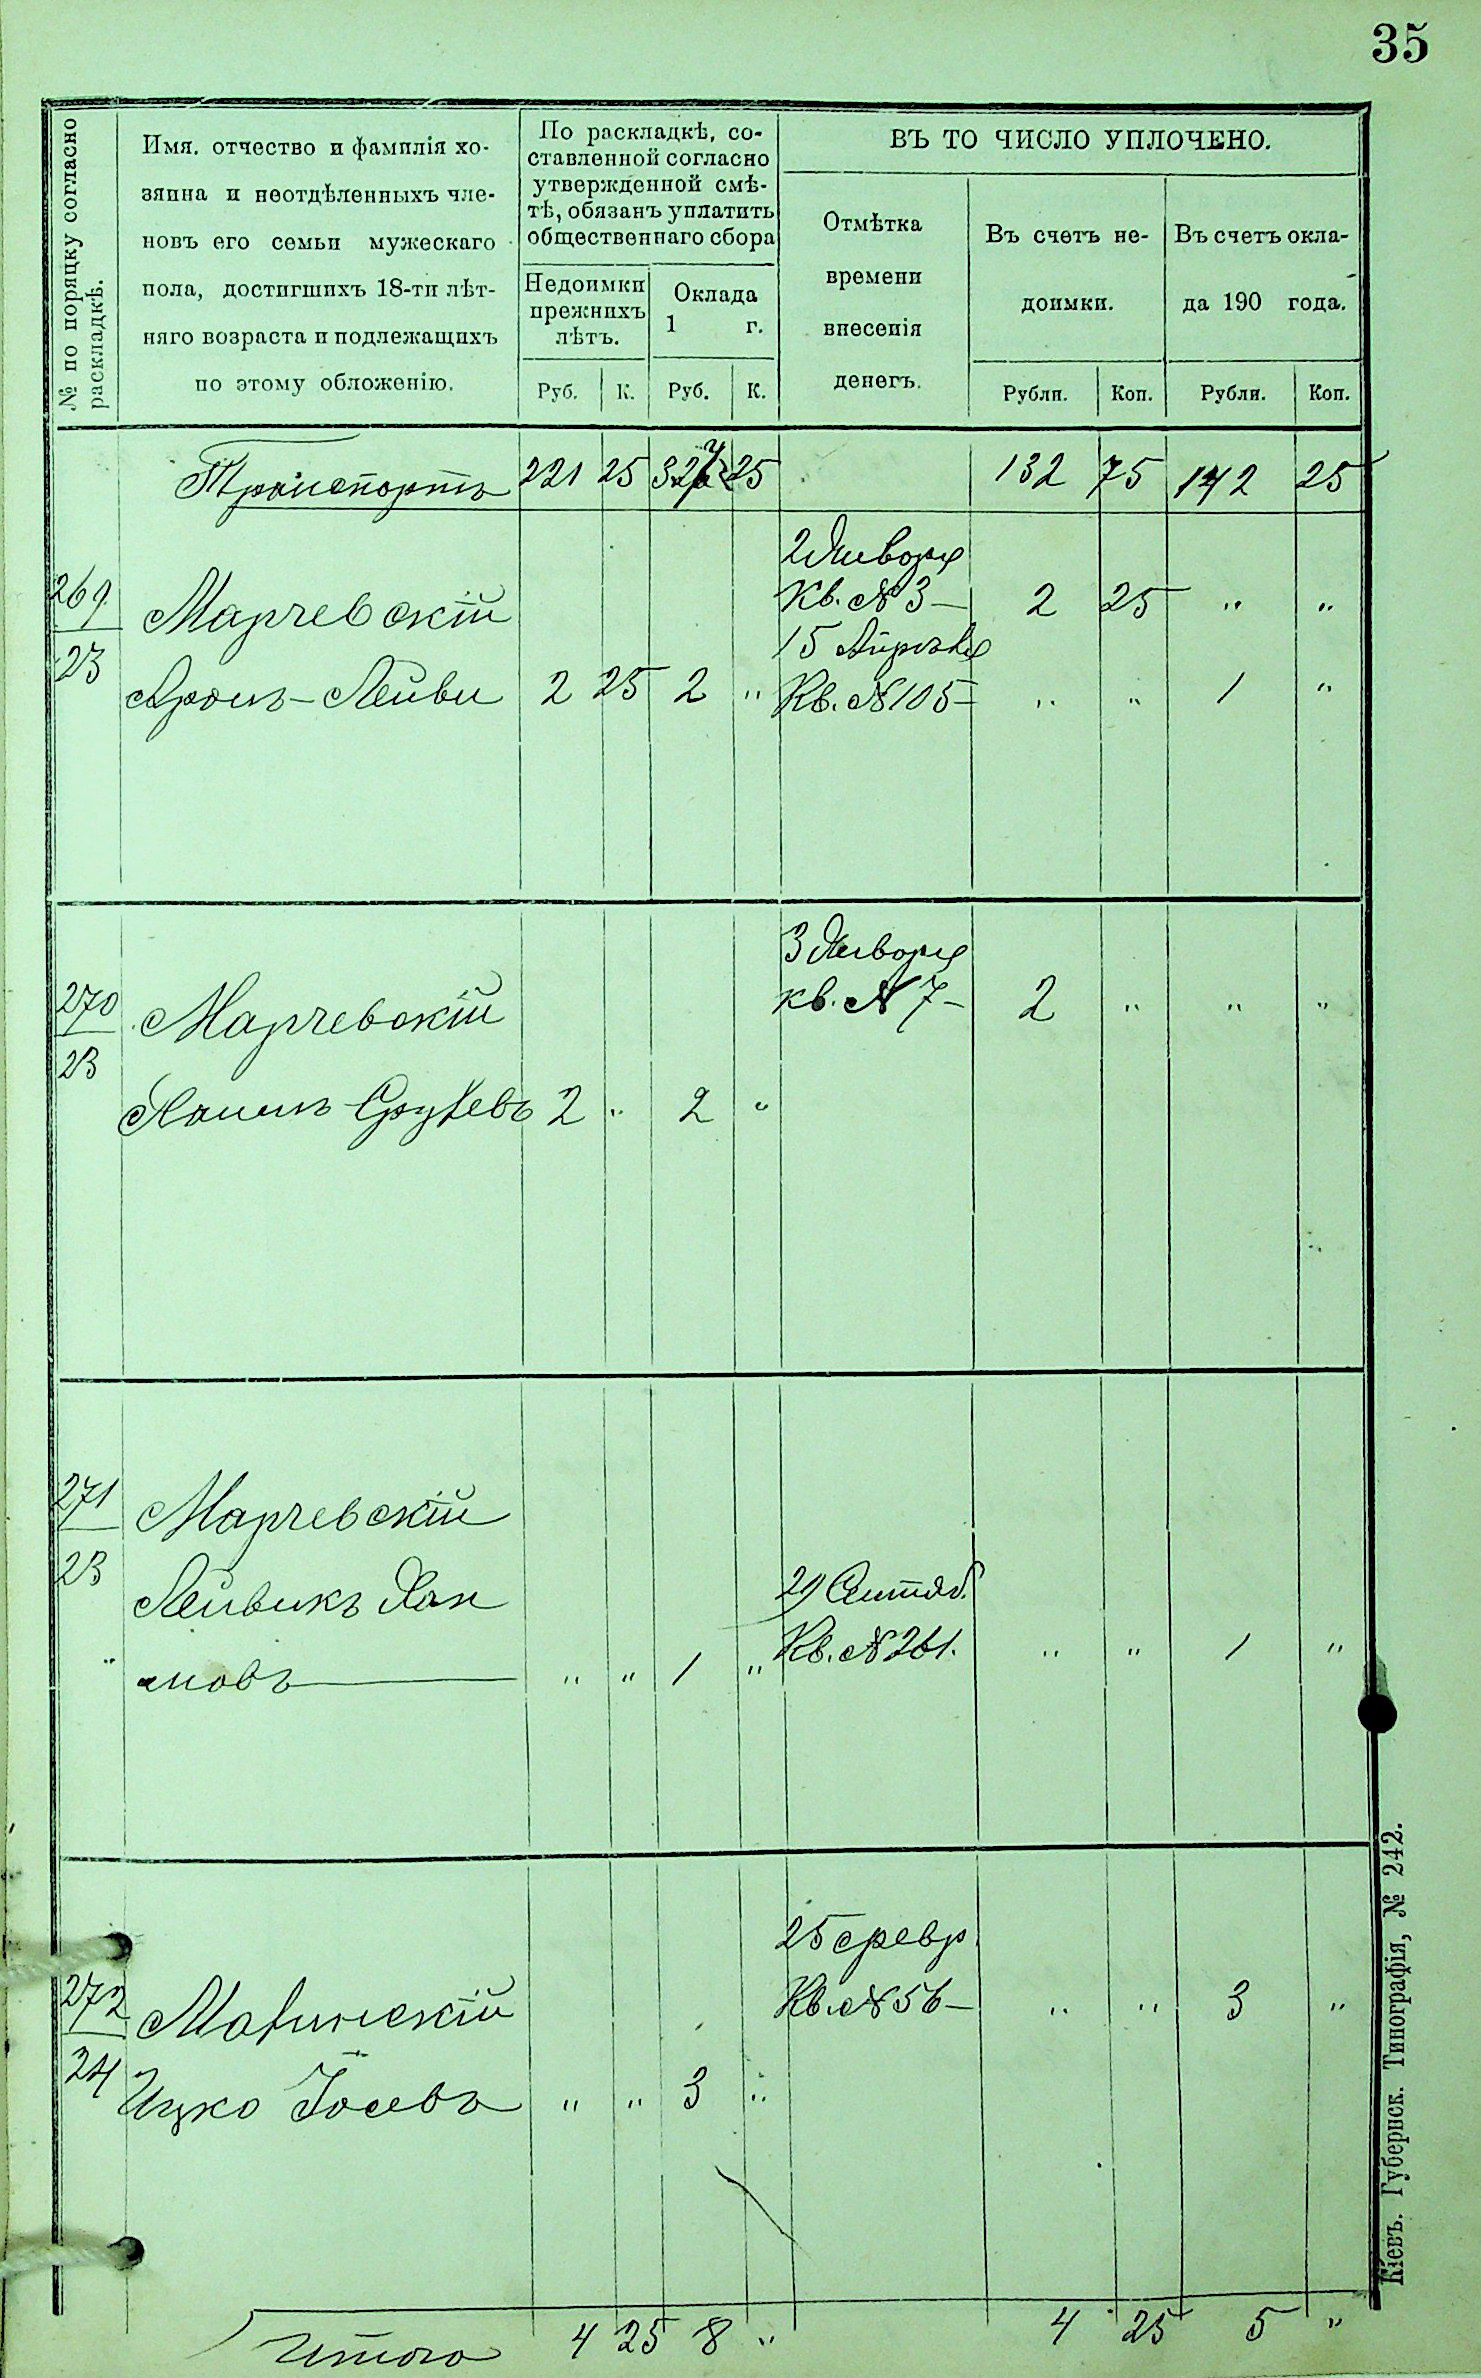 35
№ по поряцку согласно раскладкѣ.
Имя. отчество и фамилія хо-
зяина и неотдѣленныхъ чле-
новъ его семьи мужескаго
пола, достигшихъ 18-ти лѣт-
няго возраста и подлежащихъ
по этому обложенію.
По раскладкѣ, со-
ставленной согласно
утвержденной смѣ-
тѣ, обязанъ уплатить
общественнаго сбора
Недоимки
прежнихъ
лѣтъ.
Оклада
1 г.
Руб. К. Руб. К.
ВЪ ТО ЧИСЛО УПЛОЧЕНО.
Отмѣтка
времени
внесенія
денегъ.
Въ счетъ не-
доимки.
Въ счетъ окла-
да 190 года.
Рубли. Коп. Рубли. Коп.
Транспортъ 221 25 327 25 132 75 142 25
2 Января
269 Марчевскій Кв. № 3 — 2 25 " "
23 15 Апрѣля
Аронъ-Лейви 2 25 2 " Кв. № 105 — " " 1 "
3 Января
270 Марчевскій кв. № 7 — 2 " " "
23
2 " 2 "
271 Марчевскій
23 Лейвикъ 29 Сентяб.
Кв. № 261. " " 1 "
" мовъ " " 1 "
25 февр.
272 Кв. № 56 — " " 3 "
24 Ицко Іосевъ " " 3 "
Итого 4 25 8 " 4 25 5 "
Кіевъ. Губернск. Типографія, № 242.